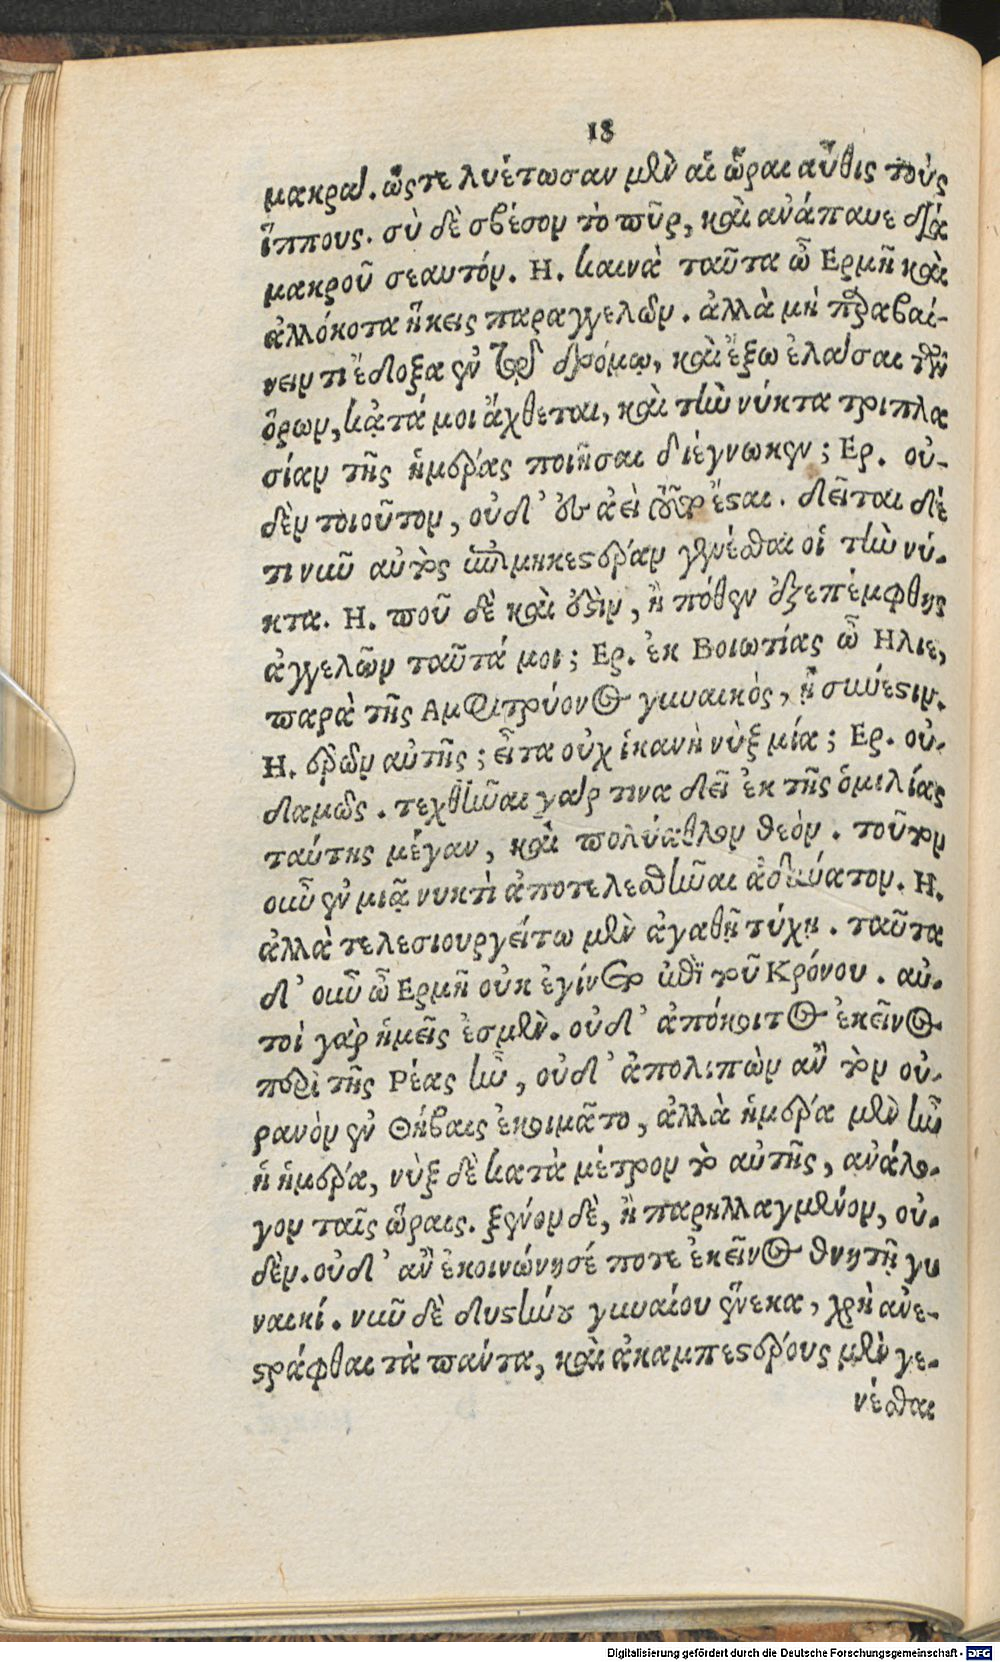 18
μακρά. ὥς τε λυέτωσαν μὲν αἱ ὧραι αὖθις τοὺς
ἵππους. σὺ δὲ σβέσον τὸ πῦρ, καὶ ἀνάπαυε διὰ
μακροῦ σεαυτόν. Η. καινὰ ταῦτα ὦ Ερμῆ καὶ
ἀλλόκοτα ἥκεις παραγγελῶν. ἀλλὰ μὴ παραβαί-
νειν τι ἔδοξα ἐν τῷ δρόμῳ, καὶ ἔξω ἐλάσαι τῶν
ὅρων, κᾆτά μοι ἄχθεται, καὶ τὴν νύκτα τριπλα
σίαν τῆς ἡμέρας ποιῆσαι διέγνωκεν; Ερ. οὐ-
δὲν τοιοῦτον, οὐδ' ἐς ἀεὶ τοῦτο ἔσται. δεῖται δέ
τι νῦν αὐτὸς ἐπιμηκεστέραν γενέσθαι οἱ τὴν νύ-
κτα. Η. ποῦ δὲ καὶ ἔστιν, ἢ πόθεν ἐξεπέμφθης
ἀγγελῶν ταῦτά μοι; Ερ. ἐκ Βοιωτίας ὦ Ηλιε,
παρὰ τῆς Αμφιτρύονος γυναικός, ᾗ σύνεστιν.
Η. ἐρῶν αὐτῆς; εἶτα οὐχ ἱκανὴ νὺξ μία; Ερ. οὐ-
δαμῶς. τεχθῆναι γάρ τινα δεῖ ἐκ τῆς ὁμιλίας
ταύτης μέγαν, καὶ πολύαθλον θεόν. τοῦτον
οὖν ἐν μιᾷ νυκτὶ ἀποτελεσθῆναι ἀδύνατον. Η.
ἀλλὰ τελεσιουργείτω μὲν ἀγαθῇ τύχῃ. ταῦτα
δ' οὖν ὦ Ερμῆ οὐκ ἐγίνετο ἐπὶ τοῦ Κρόνου. αὐ-
τοὶ γὰρ ἡμεῖς ἐσμέν. οὐδ' ἀπόκοιτος ἐκεῖνος
παρὰ τῆς Ρέας ἦν, οὐδ' ἀπολιπὼν ἂν τὸν οὐ-
ρανὸν ἐν Θήβαις ἐκοιμᾶτο, ἀλλὰ ἡμέρα μὲν ἦν
ἡ ἡμέρα, νὺξ δὲ κατὰ μέτρον τὸ αὐτῆς, ἀνάλο-
γον ταῖς ὥραις. ξένον δὲ, ἢ παρηλλαγμένον, οὐ-
δέν. οὐδ' ἂν ἐκοινώνησέ ποτε ἐκεῖνος θνητῇ γυ
ναικί. νῦν δὲ δυστήνου γυναίου ἕνεκα, χρὴ ἀνε-
στράφθαι τὰ πάντα, καὶ ἀκαμπεστέρους μὲν γε-
νέσθαι
Digitalisierung gefördert durch die Deutsche Forschungsgemeinschaft - DFG